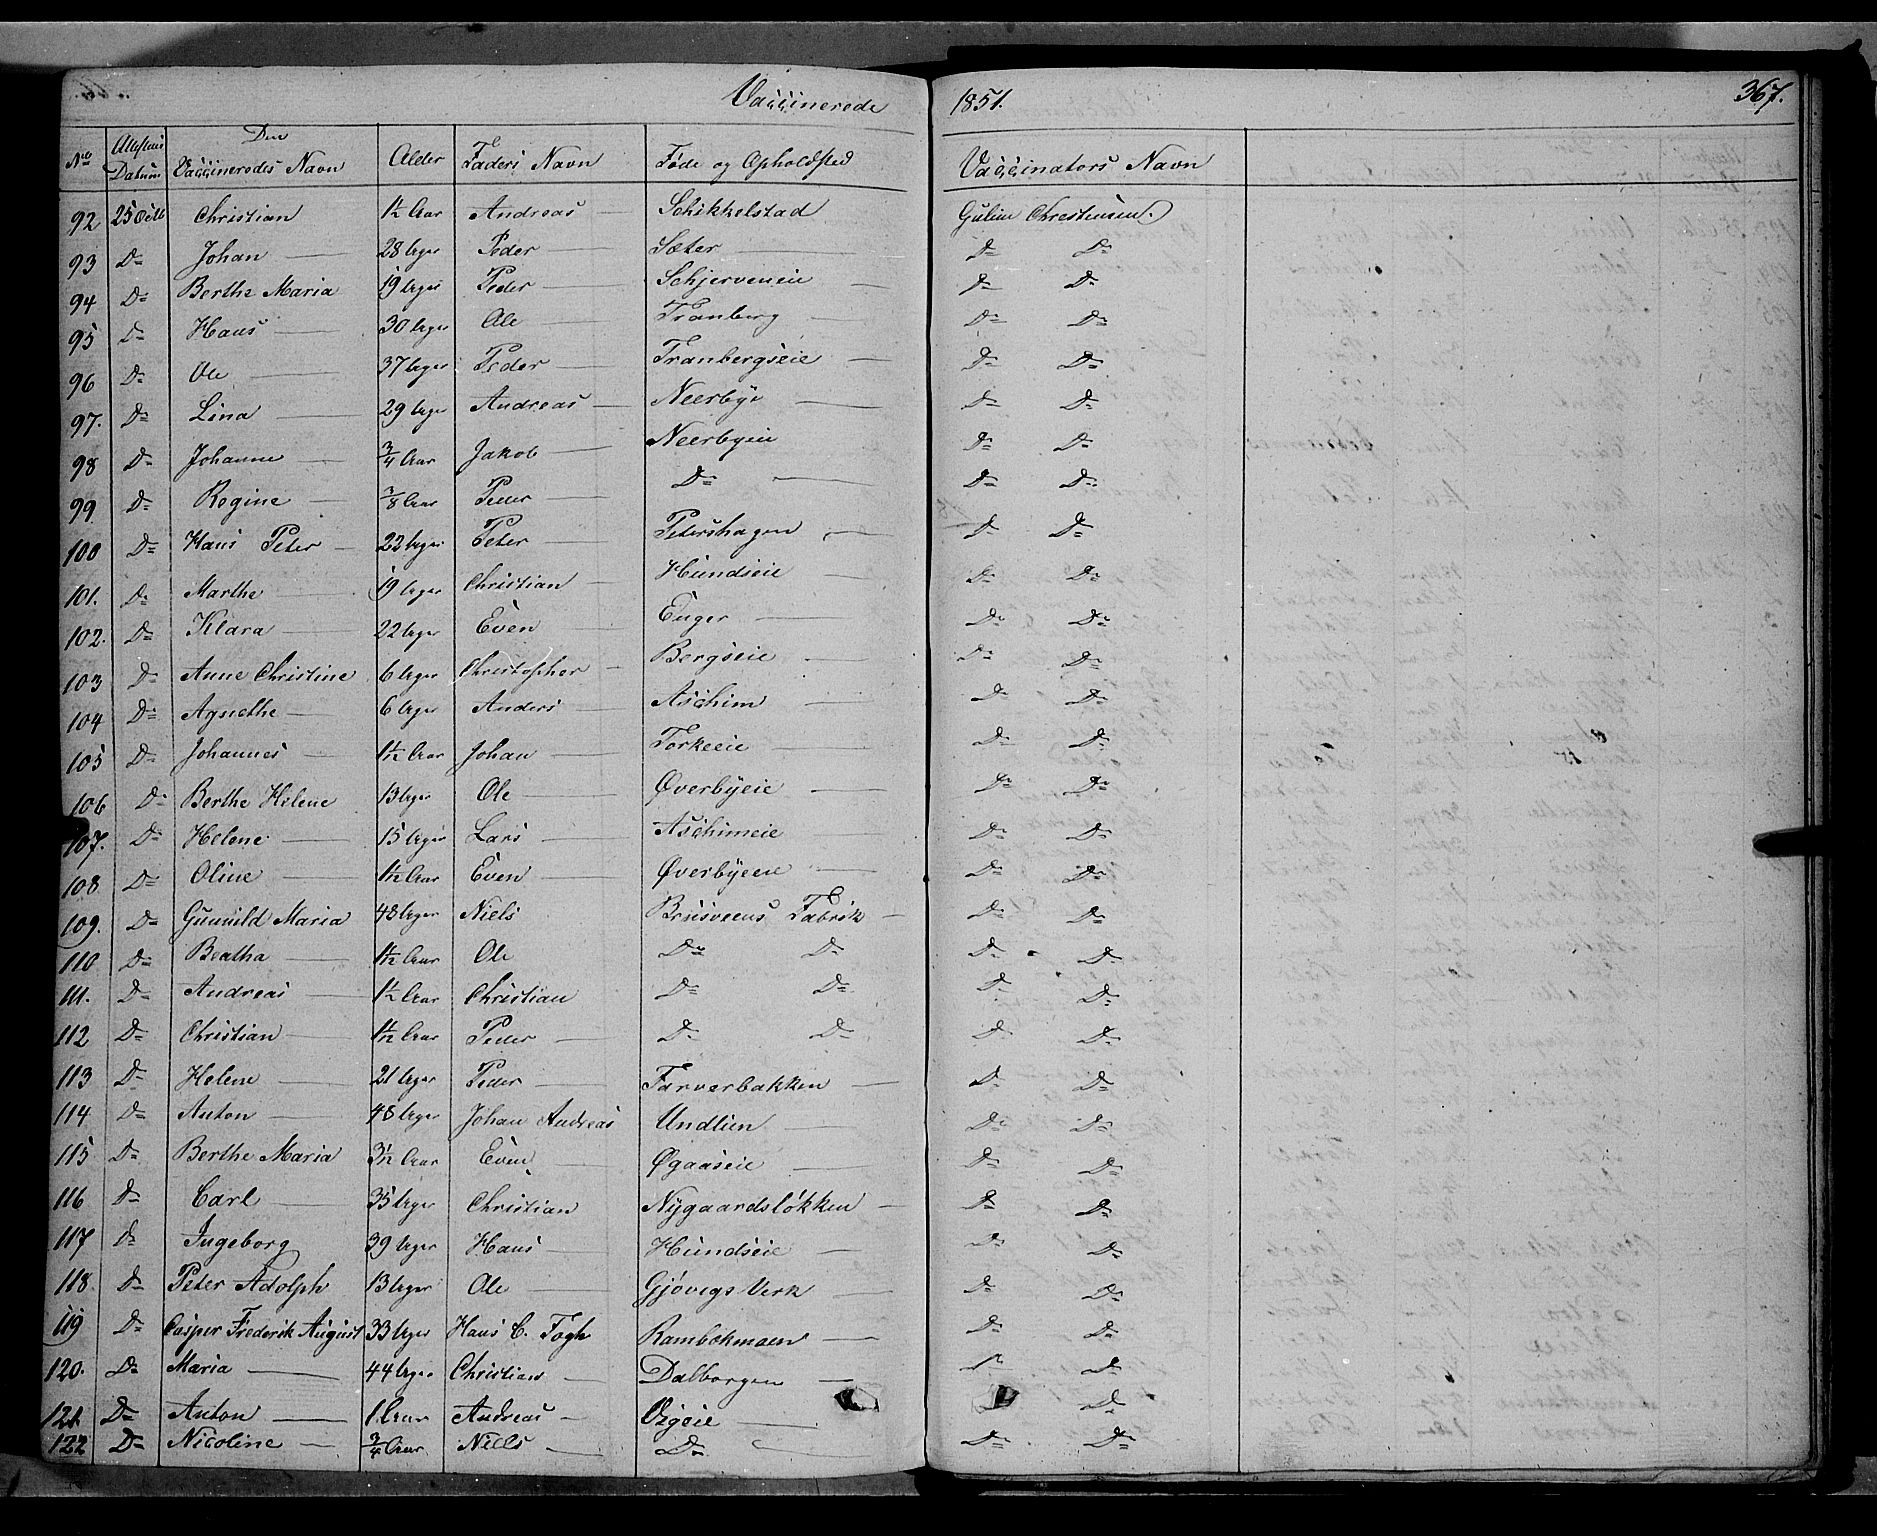 Vaccinerede 1851. 367.
No Attestens Datum Den Vaccineredes Navn Alder Faders Navn Føde og Opholdsted Vaccinators Navn
92 25 Octb Christian 1½ Aar Andreas Schikkelstad Gulin Christensen.
93 Do Johan 28 Uger Peder Sæter Do Do
94 Do Berthe Maria 19 Uger Peder Schjerveneie Do Do
95 Do Hans 30 Uger Ole Tranberg Do Do
96 Do Ole 37 Uger Peder Tranbergseie Do Do
97. Do Lina 29 Uger Andreas Neerbye Do Do
98 Do Johanne ¾ Aar Jakob Neerbyeie Do Do
99 Do Regine ⅜ Aar Peder Do Do Do
100 Do Hans Peter 22 Uger Peter Petershagen Do Do
101. Do Marthe 19 Uger Christian Hundseie Do Do
102. Do Klara 22 Uger Even Enger Do Do
103 Do Anne Christine 6 Uger Christopher Bergseie Do Do
104 Do Agnethe 6 Uger Anders Aschim Do Do
105 Do Johannes 1½ Aar Johan Torkeeie Do Do
106 Do Berthe Helene 13 Uger Ole Øverbyeie Do Do
107. Do Helene 15 Uger Lars Aschimeie Do Do
108 Do Oline 1½ Aar Even Øverbyeie Do Do
109. Do Gunnild Maria 48 Uger Niels Brusveens Fabrik Do Do
110 Do Beatha 1½ Aar Ole Do Do Do Do
111. Do Andreas 1½ Aar Christian Do Do Do Do
112 Do Christian 1½ Aar Peder Do Do Do Do
113 Do Helene 21 Uger Peder Farverbakken Do Do
114 Do Anton 48 Uger Johan Andreas Undlien Do Do
115 Do Berthe Maria 3½ Aar Even Øgaaseie Do Do
116 Do Carl 35 Uger Christian Nygaardsløkken Do Do
117 Do Ingeborg 39 Uger Hans Hundseie Do Do
118. Do Peter Adolph 13 Uger Ole Gjøvigs Verk Do Do
119 Do Casper Frederik August 33 Uger Hans C. Fogh Rambekmoen Do Do
120. Do Maria 44 Uger Christian Dalborgen Do Do
121. Do Anton 1 Aar Andreas Do
122 Do Nicoline ¾ Aar Niels Do Do Do